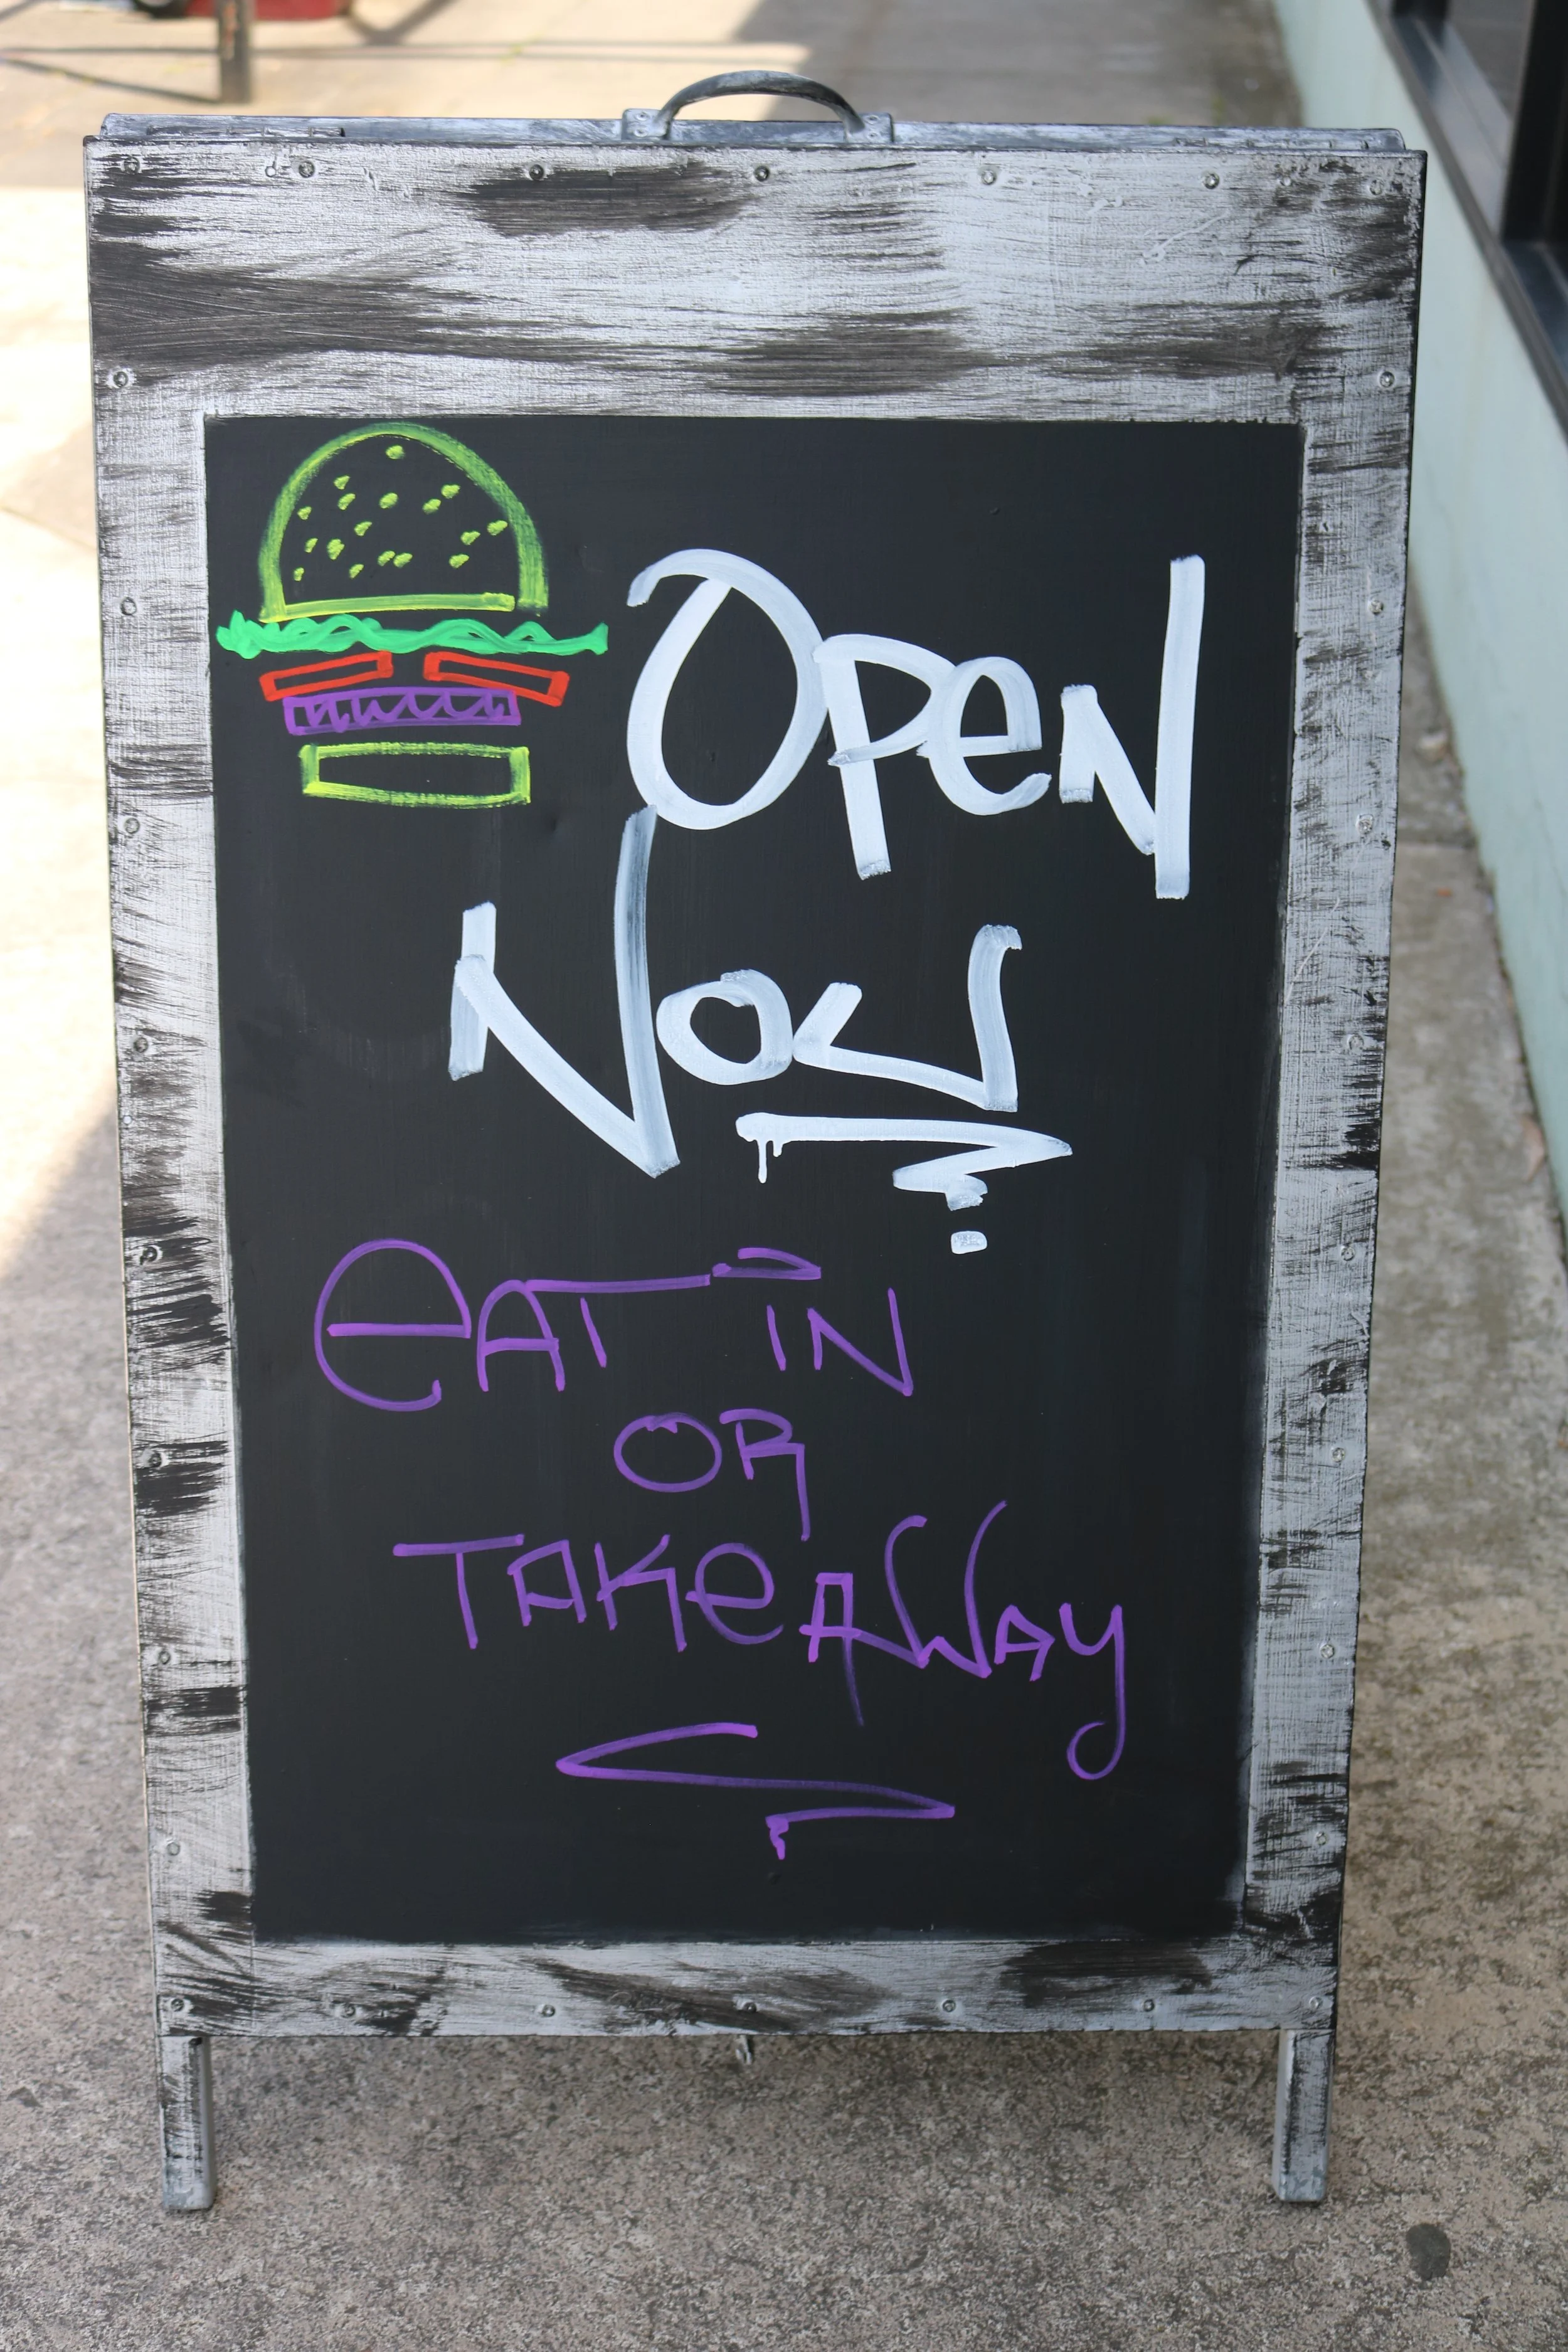 Open
Now
eat in
or
Takeaway